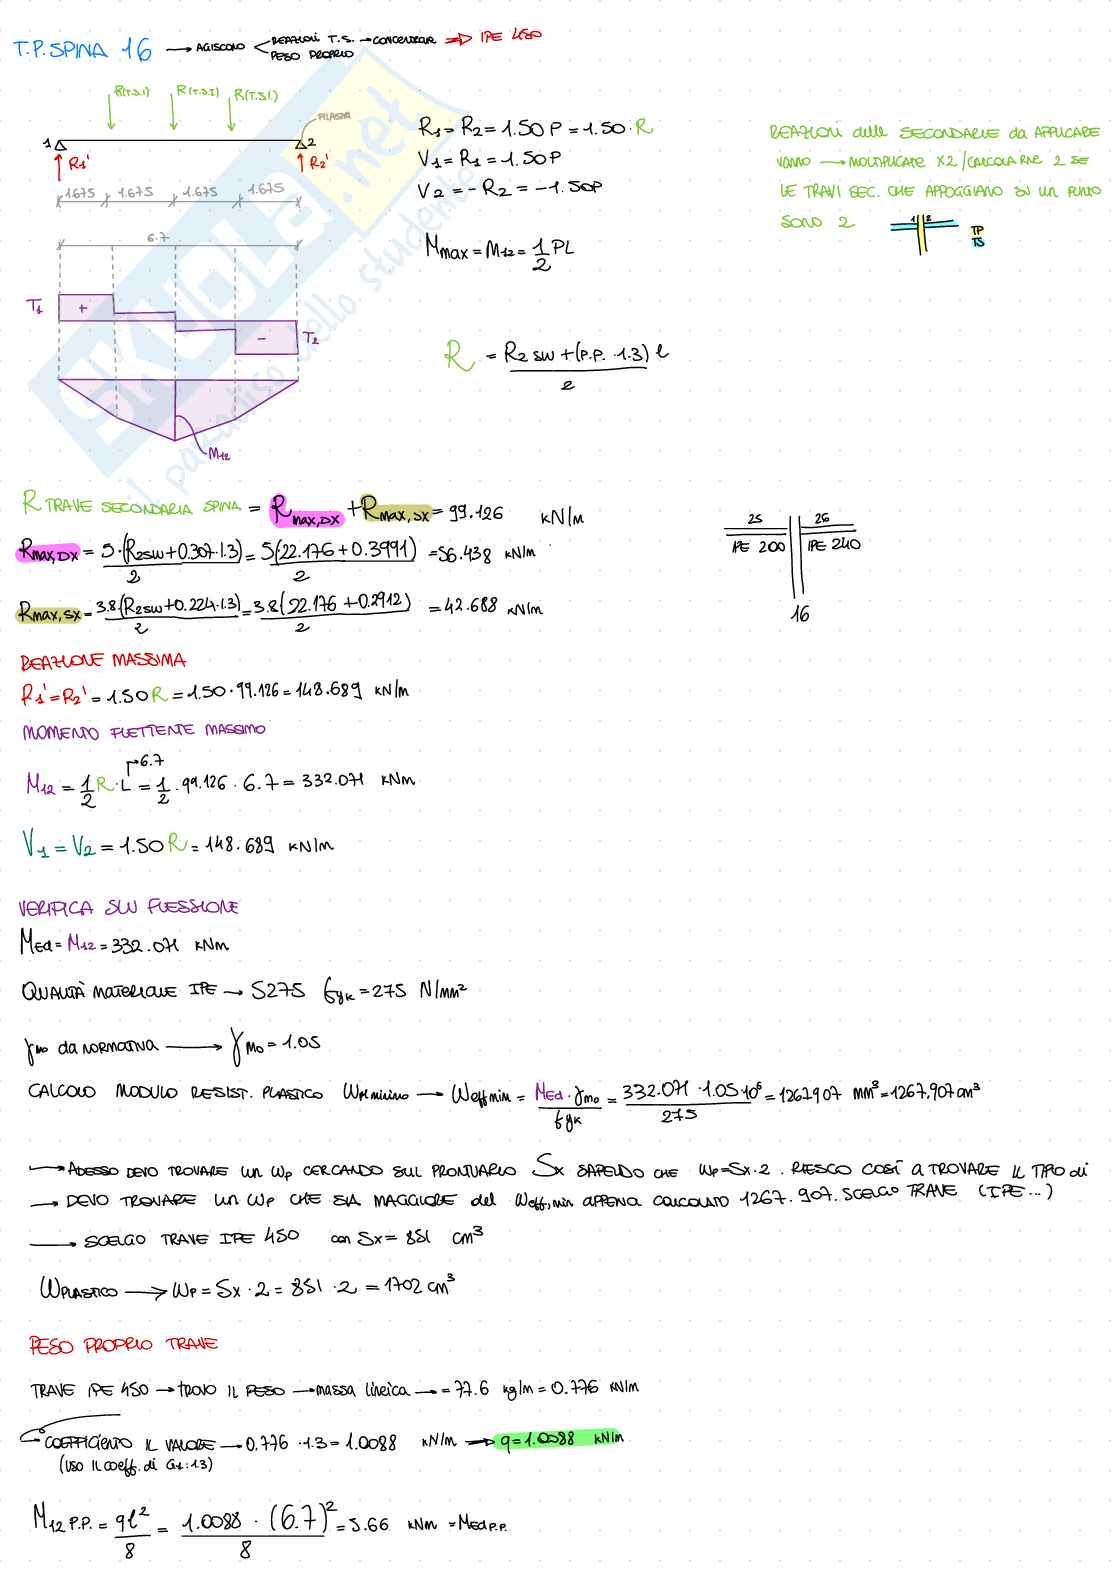 T.P. SPINA 16 → AGISCONO < REAZIONI T.S. → CONCENTRATE ⇒ IPE 450
PESO PROPRIO
R(T.S.I) R(T.S.I) R(T.S.I.)
PILASTRI
1 2
R1' R2'
1.675 1.675 1.675 1.675
6.7
T1 + - T2
M12
R1 = R2 = 1.50 P = 1.50 · R
V1 = R1 = 1.50 P
V2 = - R2 = - 1.50P
Mmax = M12 = 1/2 PL
R = R2 SLU + (P.P. · 1.3) l / 2
REAZIONI delle SECONDARIE da APPLICARE
VANNO → MOLTIPLICATE X2 / CALCOLARNE 2 SE
LE TRAVI SEC. CHE APPOGGIANO SU UN PUNTO
SONO 2
1 2
TP
TS
R TRAVE SECONDARIA SPINA = Rmax,DX + Rmax,SX = 99.126 kN/m
Rmax,DX = 5·(R2SLU+0.307·1.3) / 2 = 5(22.176+0.3991) / 2 = 56.438 kN/m
Rmax,SX = 3.8·(R2SLU+0.224·1.3) / 2 = 3.8(22.176+0.2912) / 2 = 42.688 kN/m
25 26
IPE 200 IPE 240
16
REAZIONE MASSIMA
R1' = R2' = 1.50 R = 1.50 · 99.126 = 148.689 kN/m
MOMENTO FLETTENTE MASSIMO
6.7
M12 = 1/2 R · L = 1/2 · 99.126 · 6.7 = 332.071 kNm
V1 = V2 = 1.50 R = 148.689 kN/m
VERIFICA SLU FLESSIONE
MEd = M12 = 332.071 kNm
QUALITÀ MATERIALE IPE → S275 fyk = 275 N/mm²
γM0 da NORMATIVA → γM0 = 1.05
CALCOLO MODULO RESIST. PLASTICO Wpl minimo → Weff min = MEd · γM0 / fyk = 332.071 · 1.05 · 10⁶ / 275 = 1267907 mm³ = 1267.907 cm³
→ ADESSO DEVO TROVARE UN Wp CERCANDO SUL PRONTUARIO Sx SAPENDO CHE Wp = Sx · 2. RIESCO COSÌ A TROVARE IL TIPO di
→ DEVO TROVARE UN Wp CHE SIA MAGGIORE del Weff,min APPENA CALCOLATO 1267.907. SCELGO TRAVE (IPE...)
→ SCELGO TRAVE IPE 450 con Sx = 851 cm³
WPLASTICO → Wp = Sx · 2 = 851 · 2 = 1702 cm³
PESO PROPRIO TRAVE
TRAVE IPE 450 → TROVO IL PESO → massa lineica → = 77.6 kg/m = 0.776 kN/m
COEFFICIENTO IL VALORE → 0.776 · 1.3 = 1.0088 kN/m → q = 1.0088 kN/m
(USO IL coeff. di G1: 1.3)
M12 P.P. = ql² / 8 = 1.0088 · (6.7)² / 8 = 5.66 kNm = MEd P.P.
SKUOLA.net
il paradiso dello studente